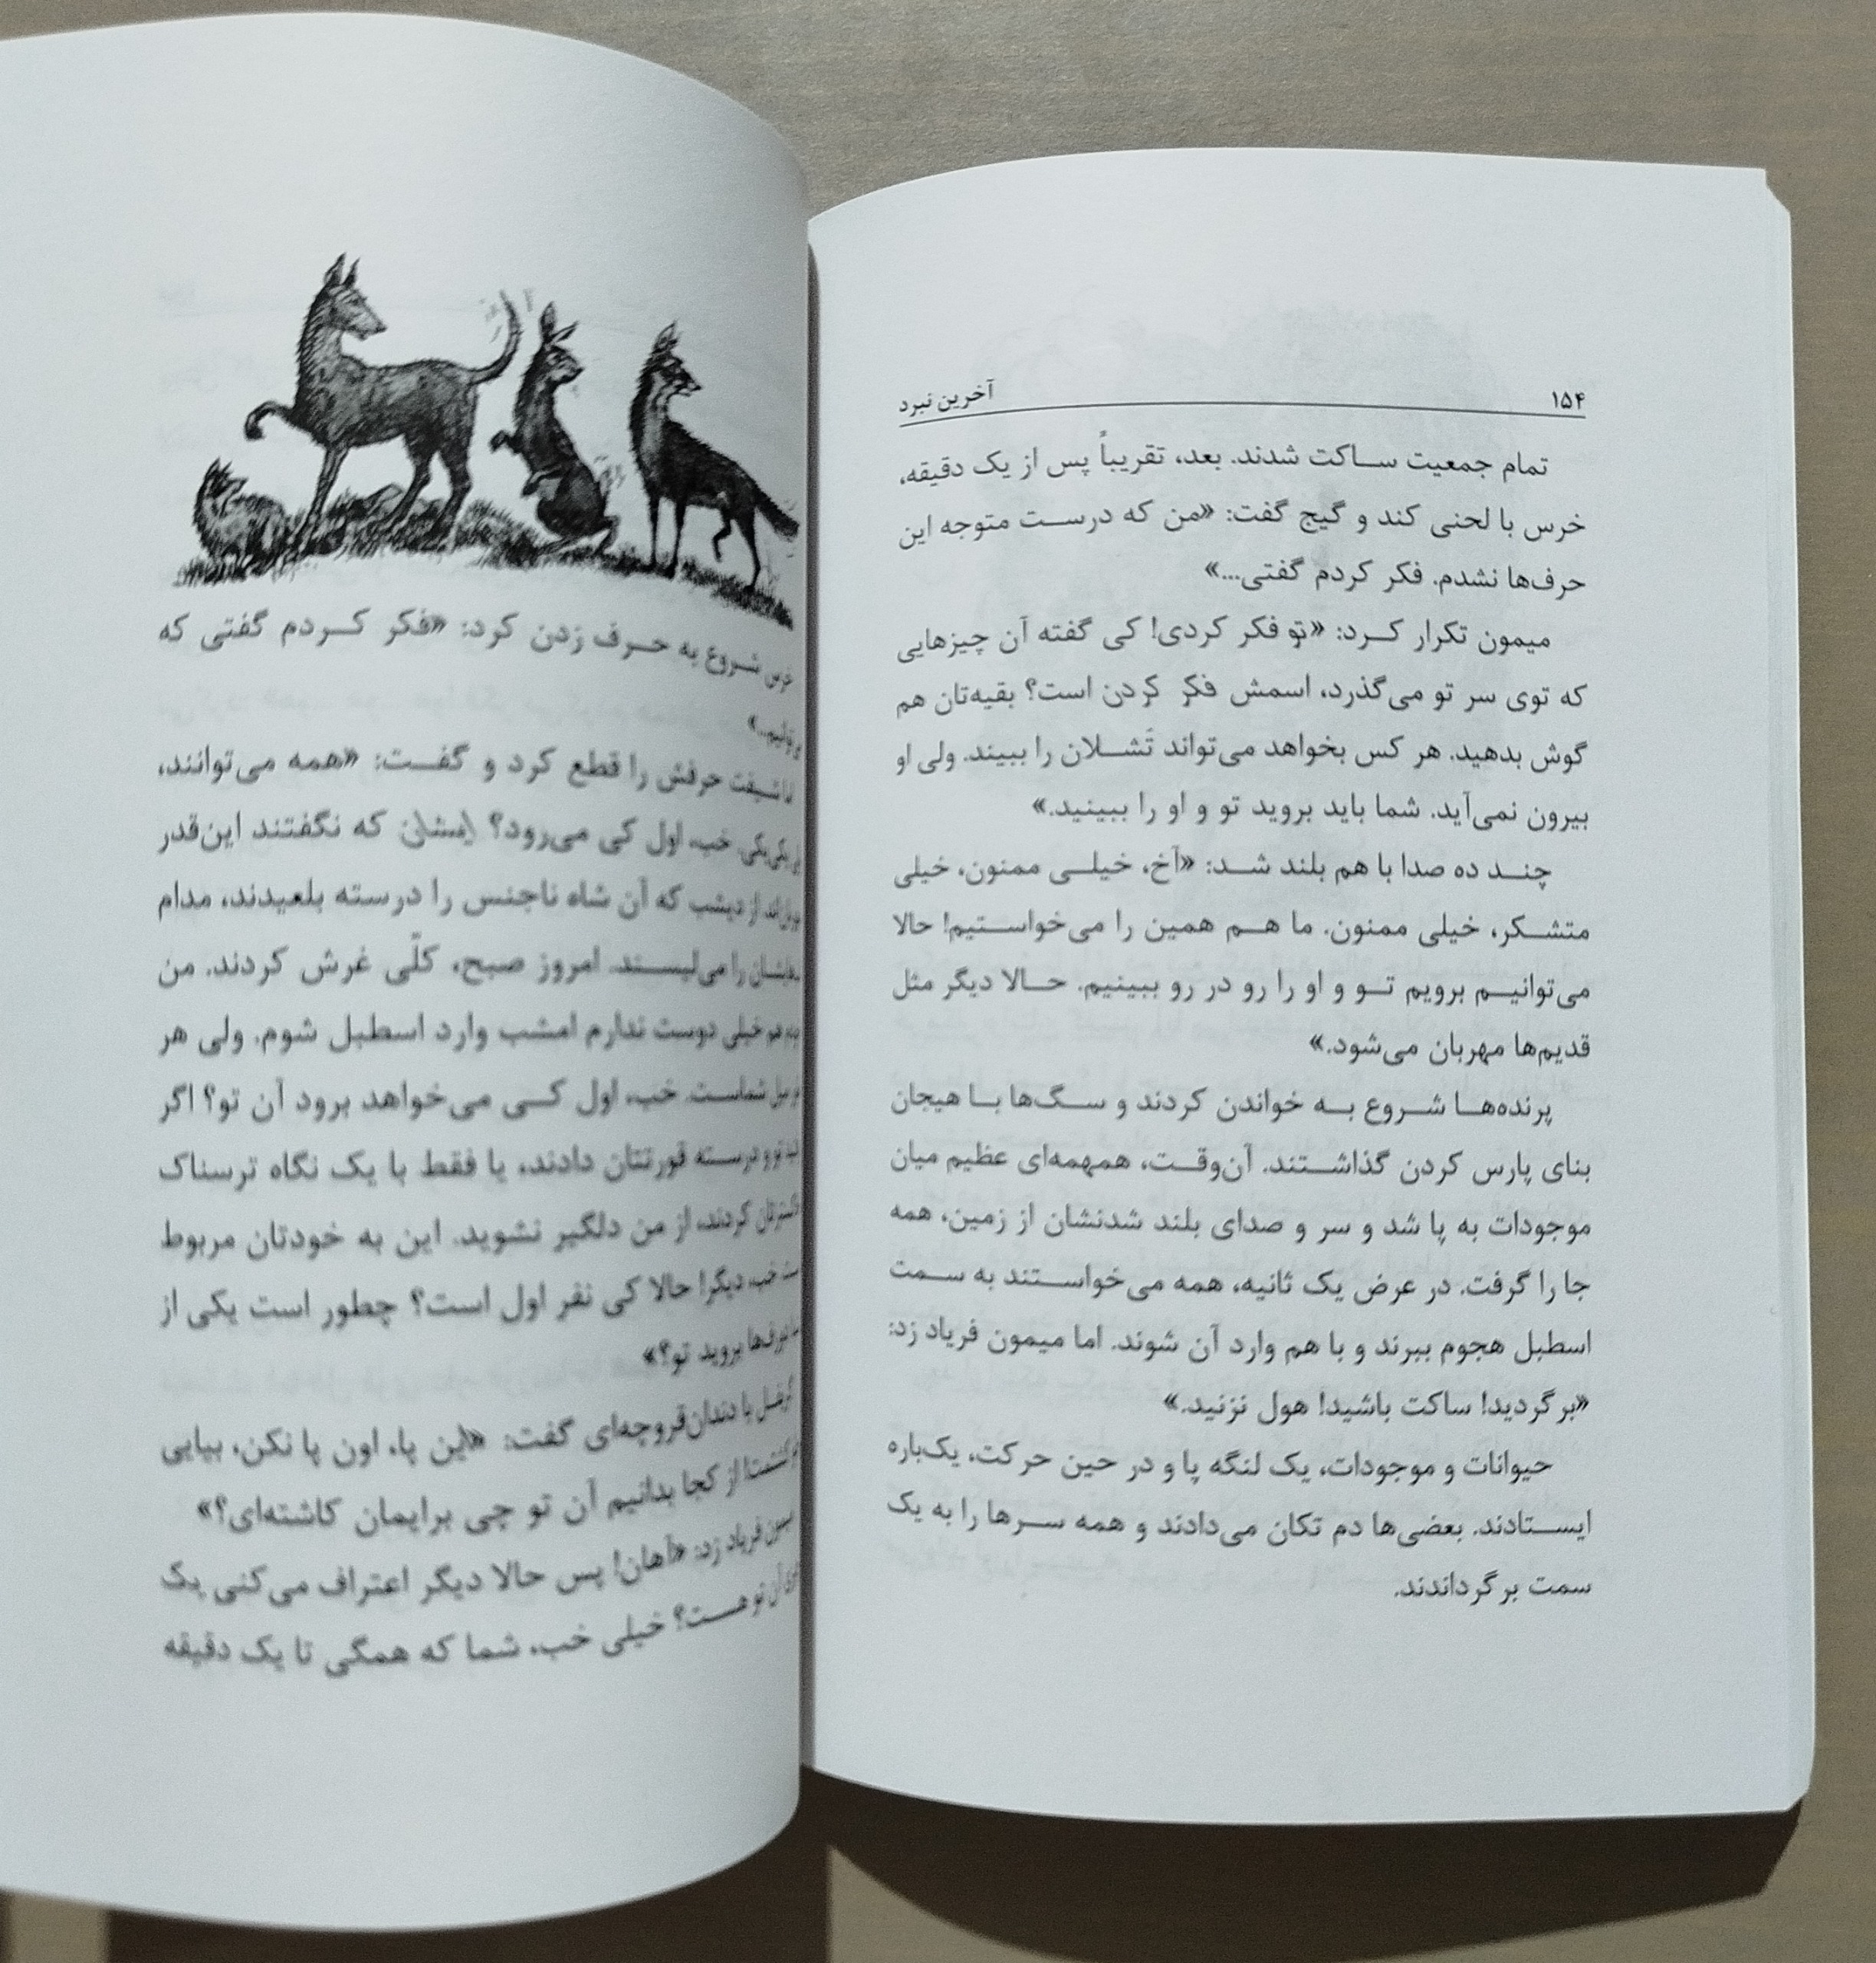 ۱۵۴ آخرین نبرد
تمام جمعیت ساکت شدند. بعد، تقریباً پس از یک دقیقه،
خرس با لحنی کند و گیج گفت: «من که درست متوجه این
حرف‌ها نشدم. فکر کردم گفتی...»
میمون تکرار کرد: «تو فکر کردی! کی گفته آن چیزهایی
که توی سر تو می‌گذرد، اسمش فکر کردن است؟ بقیه‌تان هم
گوش بدهید. هر کس بخواهد می‌تواند تَشلان را ببیند. ولی او
بیرون نمی‌آید. شما باید بروید تو و او را ببینید.»
چند ده صدا با هم بلند شد: «آخ، خیلی ممنون، خیلی
متشکر، خیلی ممنون. ما هم همین را می‌خواستیم! حالا
می‌توانیم برویم تو و او را رو در رو ببینیم. حالا دیگر مثل
قدیم‌ها مهربان می‌شود.»
پرنده‌ها شروع به خواندن کردند و سگ‌ها با هیجان
بنای پارس کردن گذاشتند. آن‌وقت، همهمه‌ای عظیم میان
موجودات به پا شد و سر و صدای بلند شدنشان از زمین، همه
جا را گرفت. در عرض یک ثانیه، همه می‌خواستند به سمت
اسطبل هجوم ببرند و با هم وارد آن شوند. اما میمون فریاد زد:
«برگردید! ساکت باشید! هول نزنید.»
حیوانات و موجودات، یک لنگه پا و در حین حرکت، یک‌باره
ایستادند. بعضی‌ها دم تکان می‌دادند و همه سرها را به یک
سمت برگرداندند.
شروع به حرف زدن کرد: «فکر کردم گفتی که
حرفش را قطع کرد و گفت: «همه می‌توانند،
خب، اول کی می‌رود؟ ایشان که نگفتند این‌قدر
از دیشب که آن شاه ناجنس را درسته بلعیدند، مدام
را می‌لیسند. امروز صبح، کلّی غرش کردند. من
هم خیلی دوست ندارم امشب وارد اسطبل شوم. ولی هر
میل شماست. خب، اول کسی می‌خواهد برود آن تو؟ اگر
درسته قورتتان دادند، یا فقط با یک نگاه ترسناک
کردند، از من دلگیر نشوید. این به خودتان مربوط
خب، دیگر! حالا کی نفر اول است؟ چطور است یکی از
بروید تو؟»
با دندان‌قروچه‌ای گفت: «این پا، اون پا نکن، بیایی
از کجا بدانیم آن تو چی برایمان کاشته‌ای؟»
فریاد زد: «آهان! پس حالا دیگر اعتراف می‌کنی یک
آن تو هست؟ خیلی خب، شما که همگی تا یک دقیقه